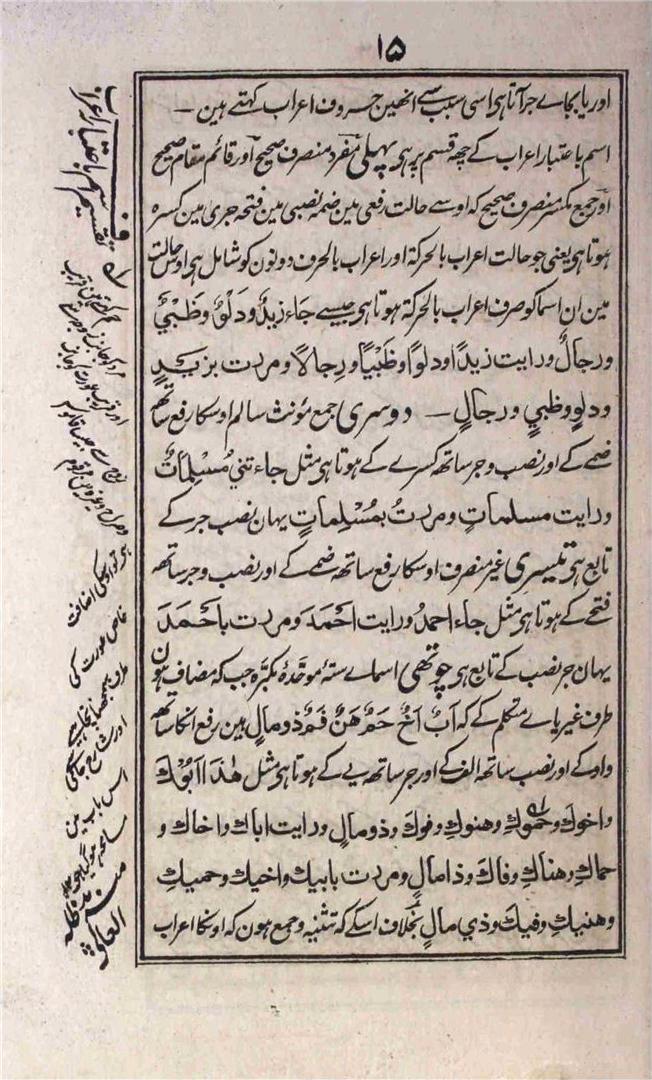 ۱۵
اور یا بجاے جر آتا ہی اسی سبب سے انھین حروف اعراب کہتے ہین ۔
اسم باعتبار اعراب کے چھہ قسم پر ہی پہلی مفرد منصرف صحیح اور قائم مقام صحیح
اور جمع مکسر منصرف صحیح کہ اوسے حالت رفعی مین ضمہ نصبی مین فتحہ جری مین کسرہ
ہوتا ہی یعنی جو حالت اعراب بالحرکة اور اعراب بالحرف دونون کو شامل ہی اوس حالت
مین ان اسما کو صرف اعراب بالحرکة ہوتا ہی جیسے جاء زیدٌ ودَلْوٌ وظَبْيٌ
ورجالٌ ورایت زیدًا ودلوًا وظَبْیًا ورِجالًا ومررت بزیدٍ
ودلوٍ وظبيٍ ورجالٍ ۔ دوسری جمع مؤنث سالم اوسکا رفع ساتھ
ضمے کے اور نصب و جر ساتھ کسرے کے ہوتا ہی مثل جاءتني مُسْلِمَاتٌ
ورایت مسلماتٍ ومررتُ بمُسْلِماتٍ یہان نصب جر کے
تابع ہی تیسری غیر منصرف اوسکا رفع ساتھ ضمے کے اور نصب و جر ساتھ
فتحے کے ہوتا ہی مثل جاء احمدُ ورایت احْمَدَ ومررت باحْمَدَ
یہان جر نصب کے تابع ہی چوتھی اسماے ستۂ موحّدۂ مکبّرہ جب کہ مضاف ہون
طرف غیر یاے متکلم کے کہ اَبٌ اَخٌ حَمٌ هَنٌ فَمٌ ذو مالٍ ہین رفع انکا ساتھ
واو کے اور نصب ساتھ الف کے اور جر ساتھ یے کے ہوتا ہی مثل هٰذَا اَبُوْكَ
واخوك وحموكِ وهنوكِ وفوكَ وذو مالٍ ورایت اباك واخاك و
حماكِ وهناكِ وفاكَ وذا مالٍ ومررت بابيك واخيك وحميكِ
وهنيكِ وفيكَ وذي مالٍ بخلاف اسکے کہ تثنیہ و جمع ہون کہ اونکا اعراب
تقسیم اسم باعتبار اعراب
ہو تو اوسکی اضافت
خاص عورت کی
طرف
اور شائع
اس باب مین
منہ مد ظلہ
العالی